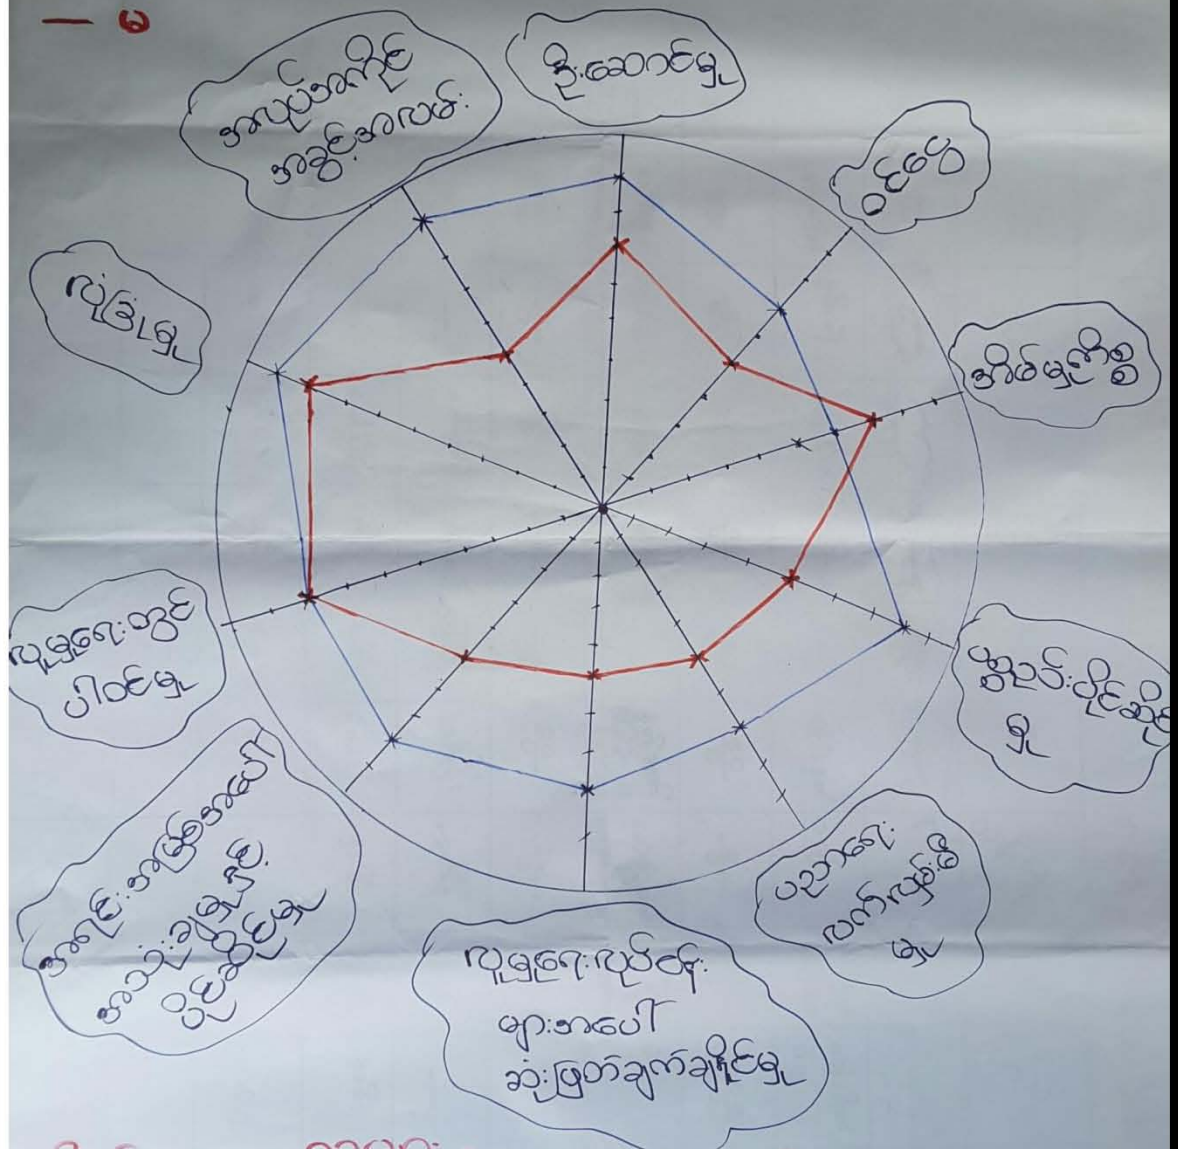 — မ
ဦးဆောင်မှု
ဝင်ငွေ
အိမ်မှုကိစ္စ
ပစ္စည်းပိုင်ဆိုင်
မှု
ပညာရေး
လက်လှမ်းမီ
မှု
လူမှုရေးလုပ်ငန်း
များအပေါ်
ဆုံးဖြတ်ချက်ချနိုင်မှု
အရင်းအမြစ်အပေါ်
အသုံးချမှုနှင့်
ပိုင်ဆိုင်မှု
လူမှုရေးတွင်
ပါဝင်မှု
လုံခြုံမှု
အလုပ်အကိုင်
အခွင့်အလမ်း